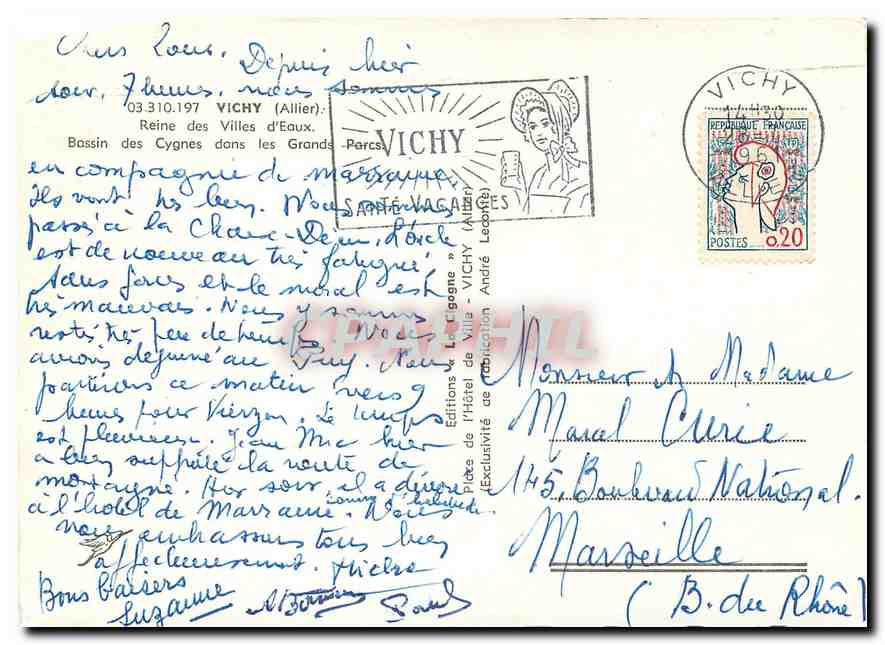 Chers Tous. Depuis hier
soir, 7 heures, nous sommes
03.310.197 VICHY (Allier).
Reine des Villes d'Eaux.
Bassin des Cygnes dans les Grands Parcs
en compagnie de marraine.
Ils vont très bien. Nous sommes
passés à la Chaise-Dieu. L'oncle
est de nouveau très fatigué
sans forces et le moral est
très mauvais. Nous y sommes
restés très peu de temps. Nous
avions déjeuné au Puy. Nous
partirons ce matin vers 9
heures pour Vierzon. Le temps
est pluvieux. Jean Mic hier
a bien supporté la route de
montagne. Hier soir il a dévoré
à l'hôtel de Marraine. comme d'habitude. Nous
vous embrassons tous bien
affectueusement.
Bons baisers
Suzanne
Paul
VICHY
SANTÉ-VACANCES
Editions « La Cigogne »
Place de l'Hôtel de Ville - VICHY (Allier)
(Exclusivité de Fabrication André Leconte)
VICHY
14H30
REPUBLIQUE FRANÇAISE
POSTES 0,20
CPARPHIL
Monsieur & Madame
Marcel Curie
145, Boulevard National.
Marseille
(B. du Rhône)